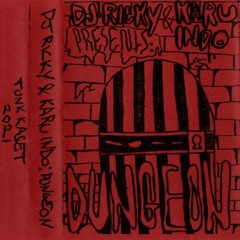 DJ RICKY & KARU INDO: DUNGEON
JUNK KASET
2021
DJ-RICKY & KARU
PRESENTS: INDO
DUNGEON